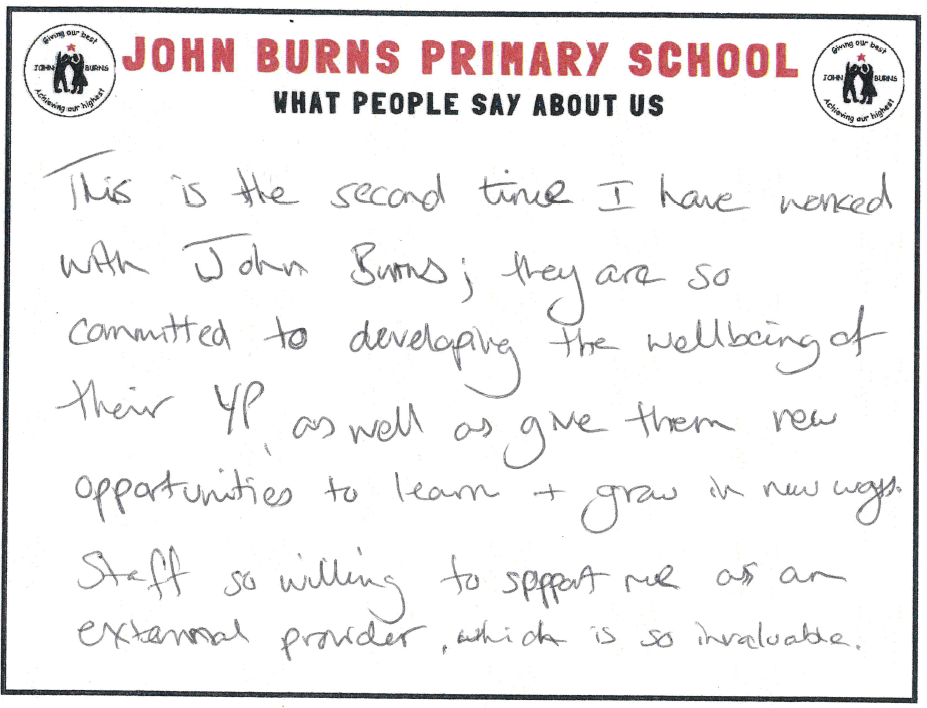 Giving our best
JOHN BURNS
Achieving our highest
JOHN BURNS PRIMARY SCHOOL
WHAT PEOPLE SAY ABOUT US
Giving our best
JOHN BURNS
Achieving our highest
This is the second time I have worked
with John Burns; they are so
committed to developing the wellbeing of
their YP, as well as give them new
opportunities to learn + grow in new ways.
Staff so willing to support me as an
external provider, which is so invaluable.